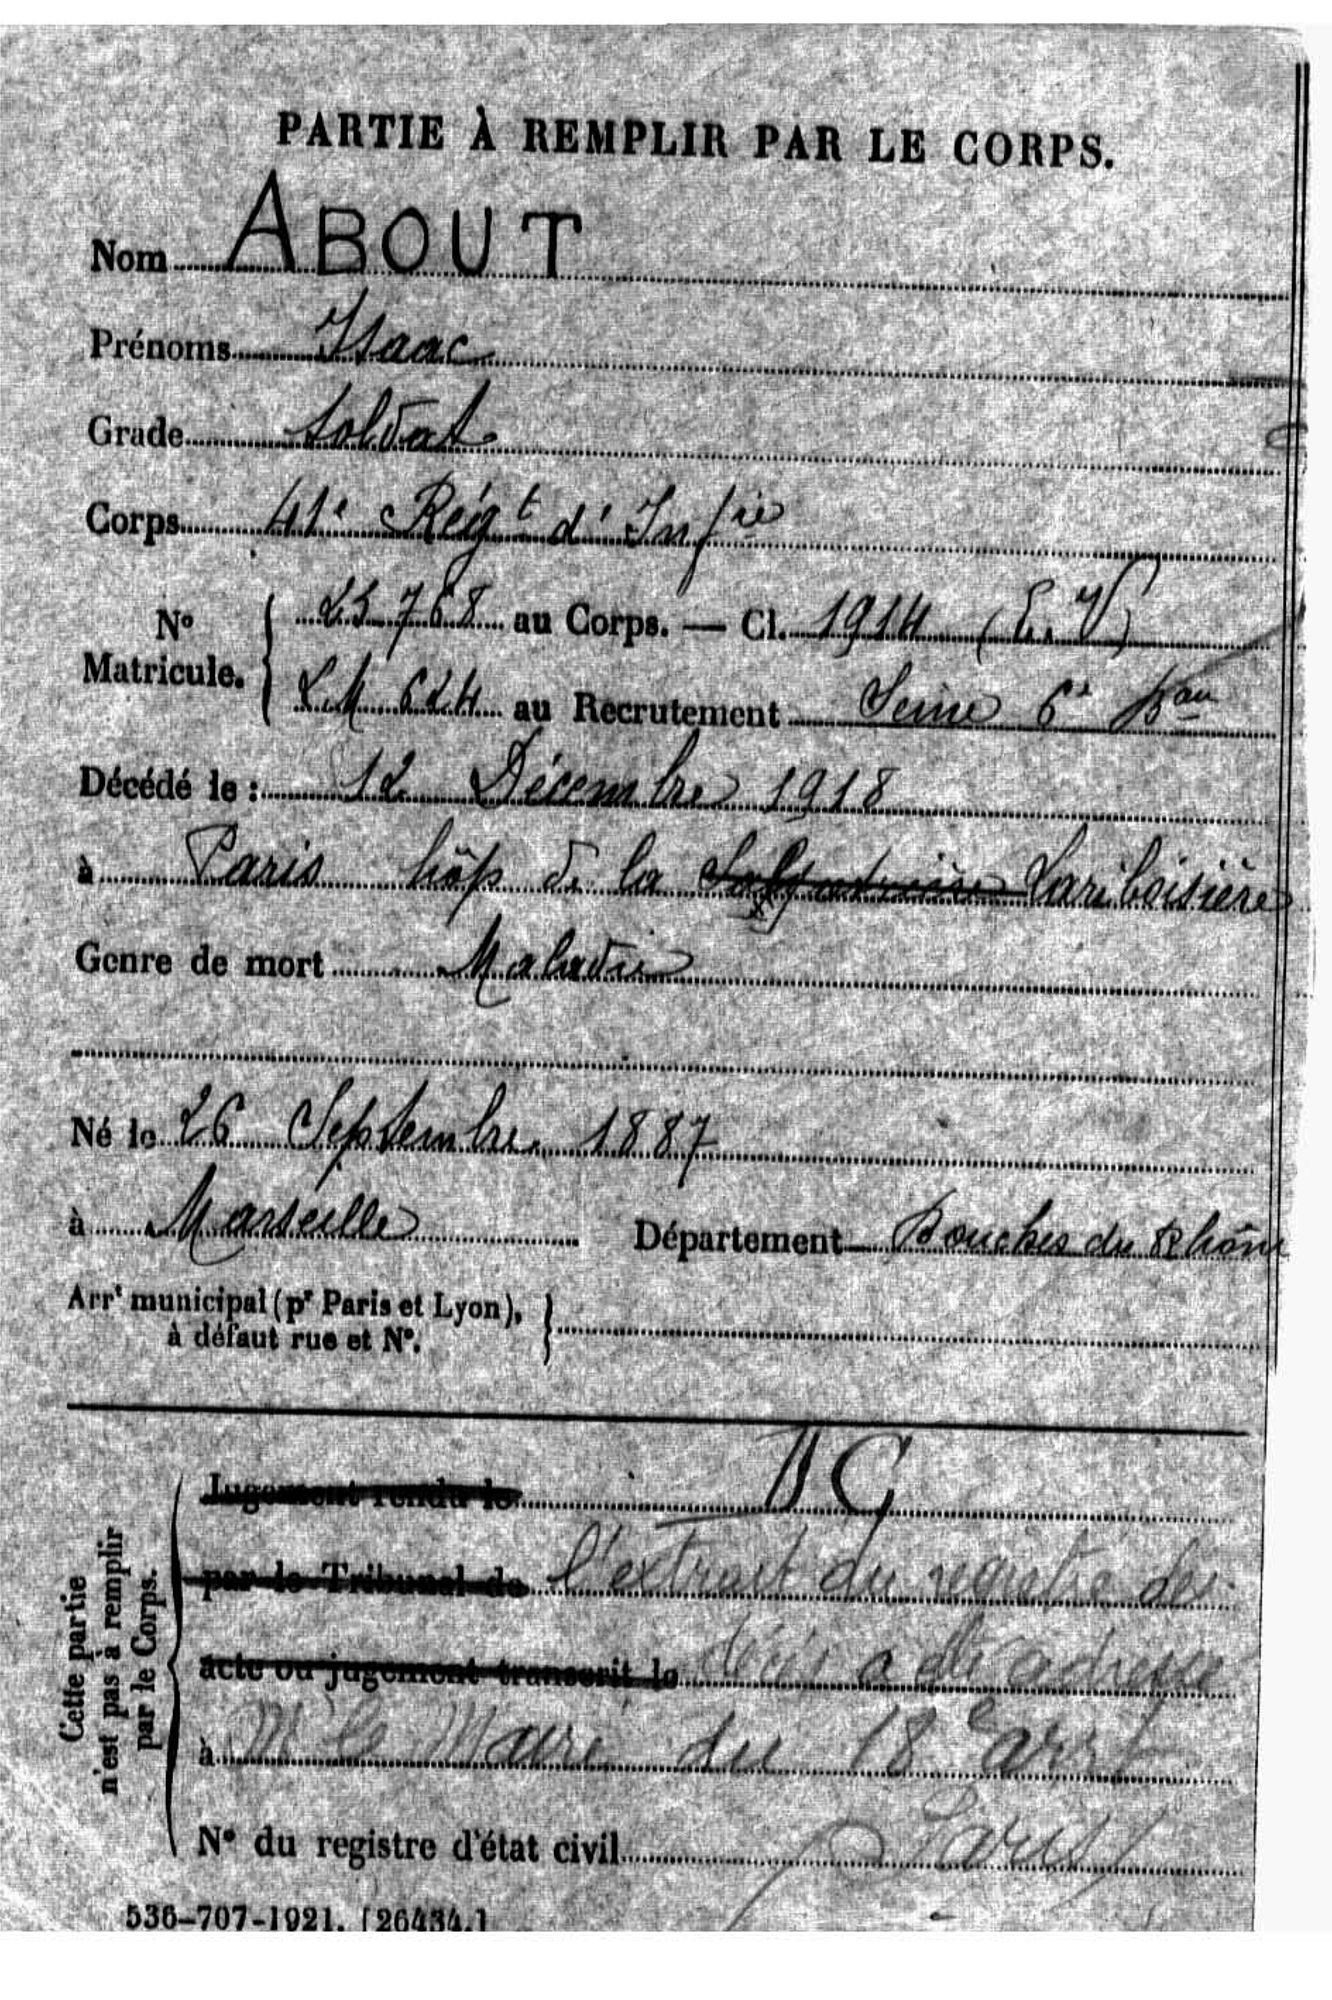 PARTIE À REMPLIR PAR LE CORPS.
Nom ABOUT
Prénoms Isaac
Grade Soldat
Corps 41e Régt d'Infie
No Matricule. { 23768 au Corps. — Cl. 1914 (E.V)
L.M 624 au Recrutement Seine 6e Bau
Décédé le : 12 Décembre 1918
à Paris hôp de la Salpêtrière Lariboisière
Genre de mort Maladie
Né le 26 Septembre 1887
à Marseille Département Bouches du Rhône
Arrt municipal (pr Paris et Lyon), }
à défaut rue et No.
Cette partie
n'est pas à remplir
par le Corps.
Jugement rendu le
par le Tribunal de l'extrait du registre des
acte ou jugement transcrit le décès a été adressé
à Mr le Maire du 18e arrt
No du registre d'état civil Paris
536-707-1921. [26434.]